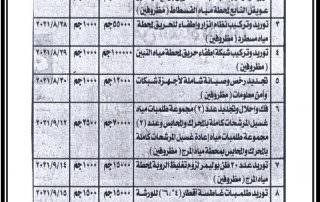 عويقل التابع لمحطة مياه الفسطاط (مظروفين)
٣ توريد وتركيب نظام إنذار وإطفاء للحريق لمحطة ٥٥٠٠٠جم ١٠٠٠جم ٢٠٢١/٨/٢٨
مياه مسطرد (مظروفين)
٤ توريد وتركيب شبكة إطفاء حريق لمحطة مياه التبين ١٠٠٠جم ٢٠٢١/٨/٢٩
(مظروفين)
٥ تجديد رخص وصيانة شاملة لأجهزة شبكات ١٠٠٠جم ٢٠٢١/٨/٣٠
وأمن معلومات (مظروفين)
٦ فك وإحلال وتجديد عدد (٢) مجموعة طلمبات مياه ٧٠٠٠٠جم ٢٥٠٠جم ٢٠٢١/٩/١٢
غسيل المرشحات كاملة بالمحرك والمحابس وعدد (٢)
مجموعة طلمبات مياه إعادة غسيل المرشحات كاملة
بالمحرك والمحابس لمحطة مياه المرج (مظروفين)
٧ توريد عدد ٢٠ طن بوليمر لزوم تغليظ الروبة لمحطة ١٥٠٠٠جم ١٥٠٠جم ٢٠٢١/٩/١٤
مياه المرج (مظروفين)
٨ توريد طلمبات غاطسة أقطار (٤"،٦") للورشة ١٥٠٠٠جم ١٥٠٠جم ٢٠٢١/٩/١٥